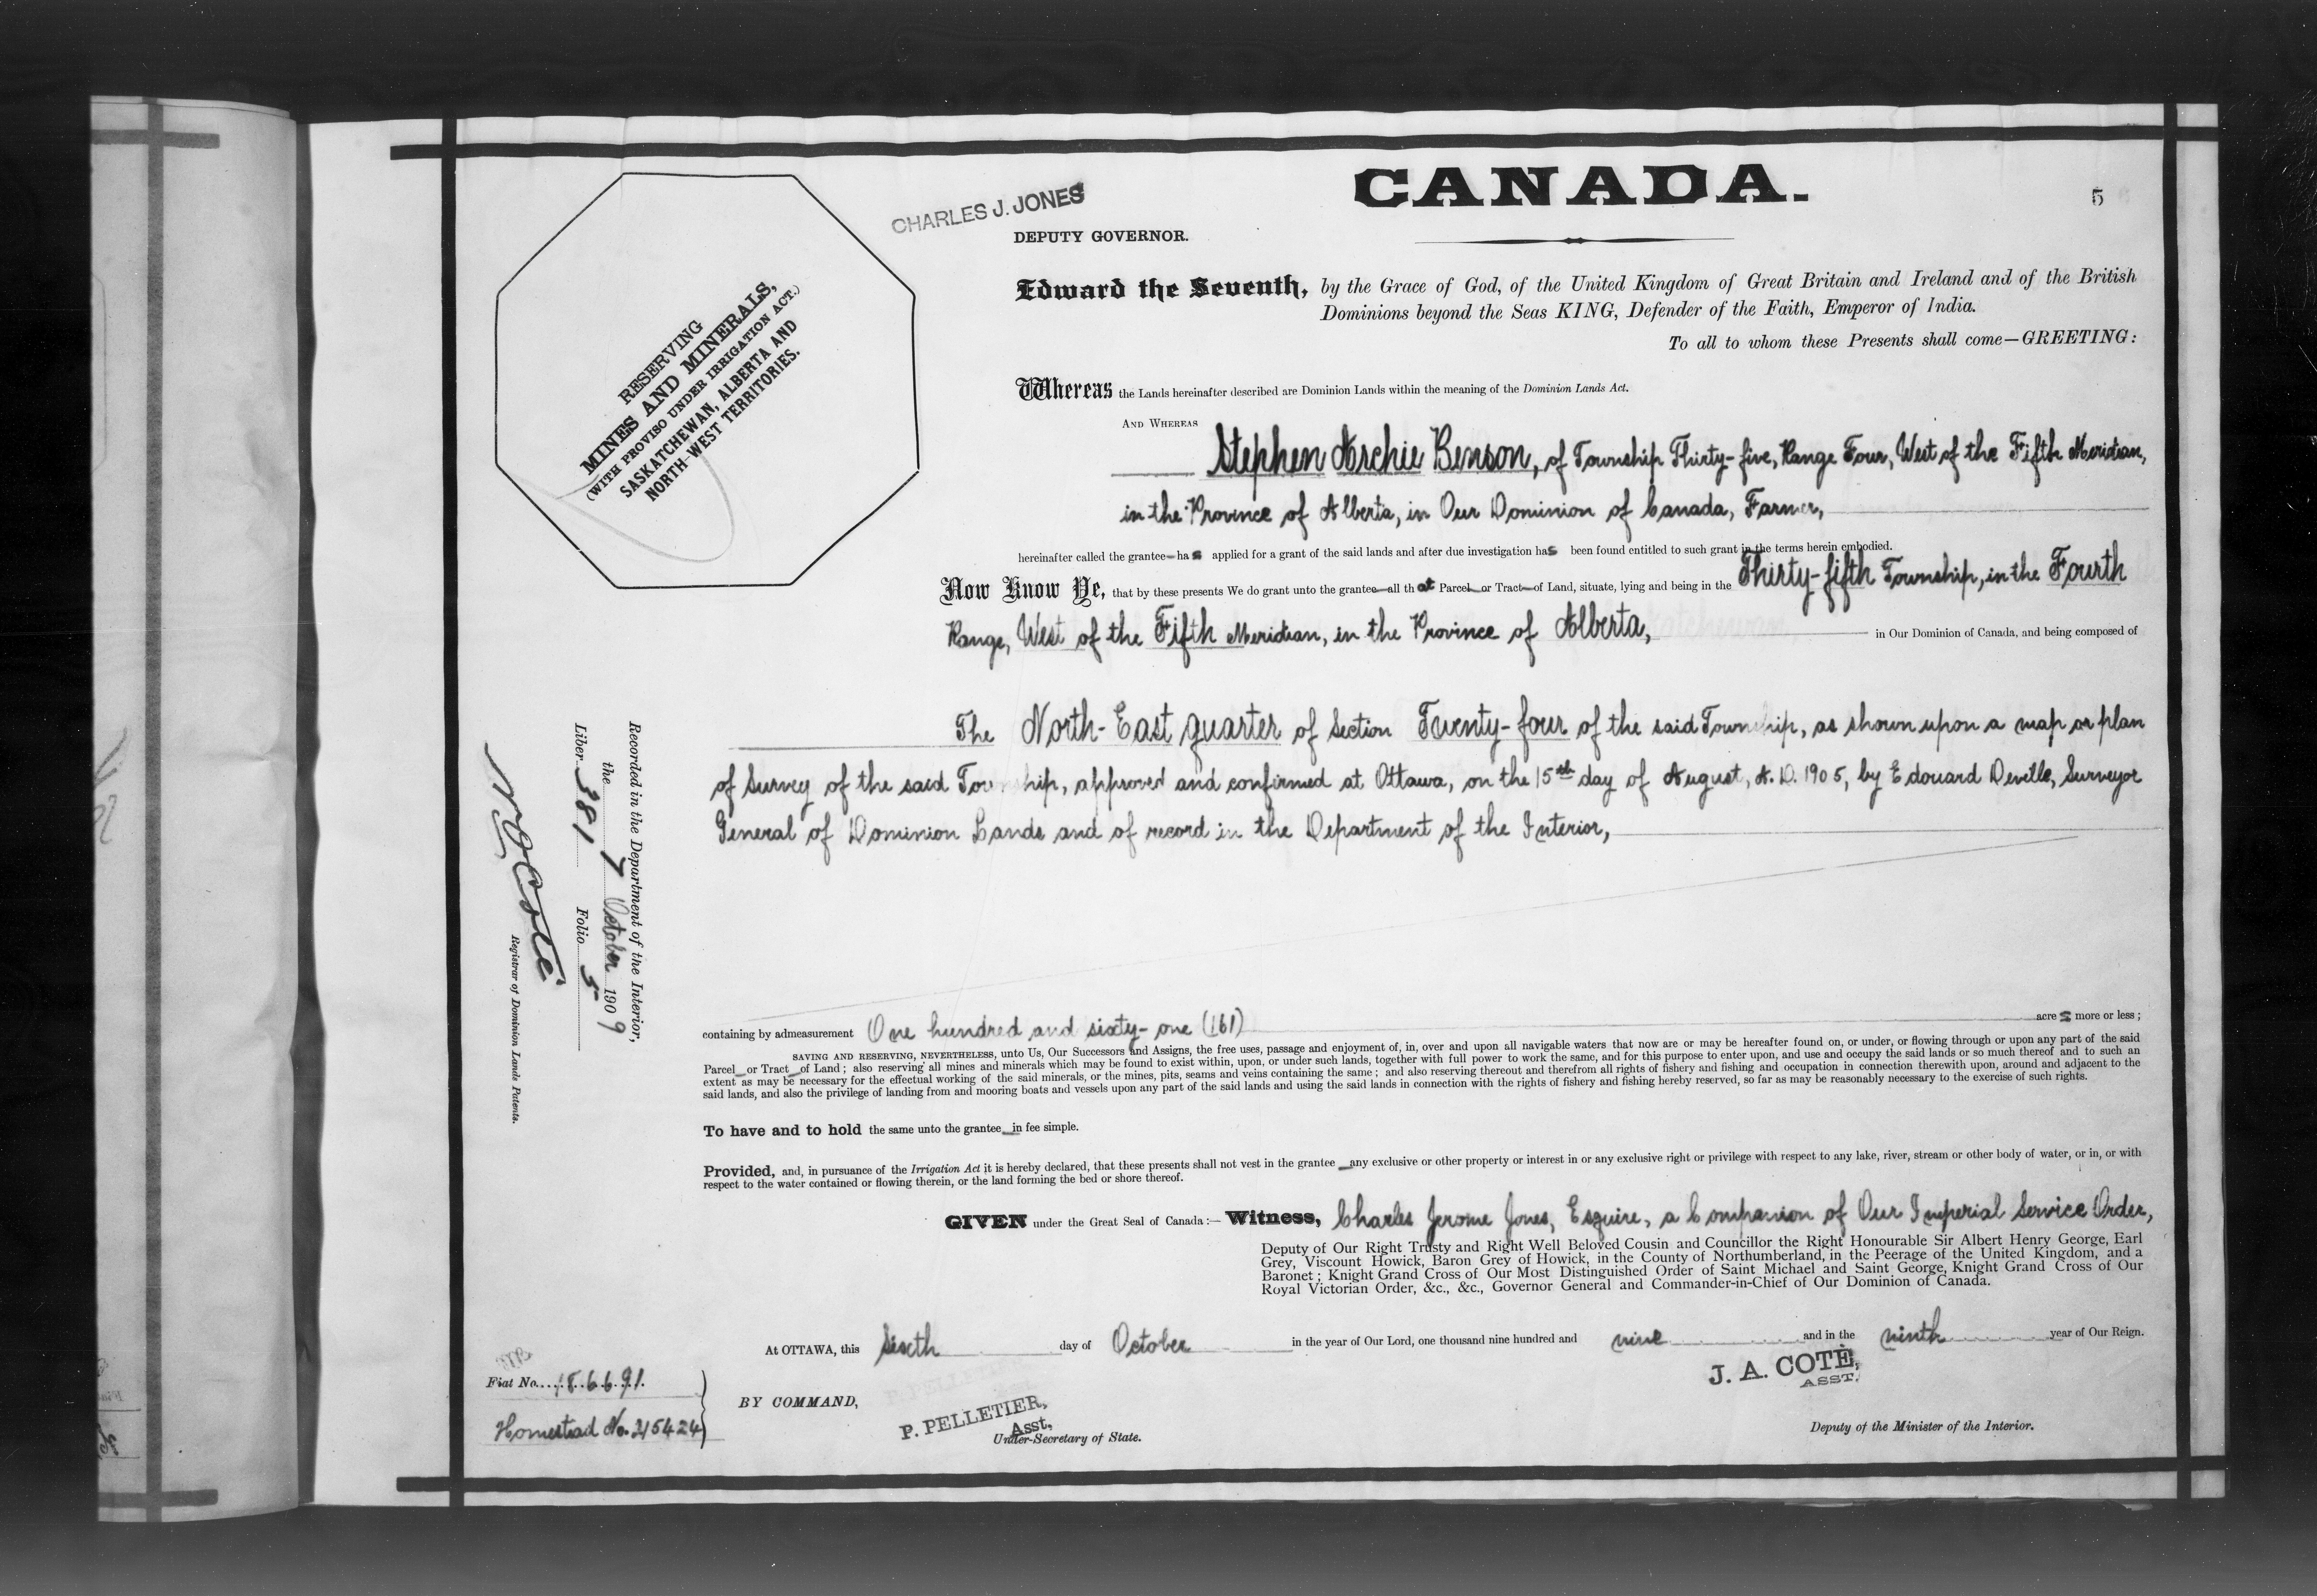 CANADA.
5
CHARLES J. JONES
DEPUTY GOVERNOR.
RESERVING
MINES AND MINERALS,
(WITH PROVISO UNDER IRRIGATION ACT.)
SASKATCHEWAN, ALBERTA AND
NORTH-WEST TERRITORIES.
Edward the Seventh, by the Grace of God, of the United Kingdom of Great Britain and Ireland and of the British
Dominions beyond the Seas KING, Defender of the Faith, Emperor of India.
To all to whom these Presents shall come—GREETING:
Whereas the Lands hereinafter described are Dominion Lands within the meaning of the Dominion Lands Act.
AND WHEREAS
Stephen Archie Benson, of Township Thirty-five, Range Four, West of the Fifth Meridian,
in the Province of Alberta, in Our Dominion of Canada, Farmer,
hereinafter called the grantee—has applied for a grant of the said lands and after due investigation has been found entitled to such grant in the terms herein embodied.
Now Know Ye, that by these presents We do grant unto the grantee—all that Parcel or Tract of Land, situate, lying and being in the Thirty-fifth Township, in the Fourth
Range, West of the Fifth Meridian, in the Province of Alberta, in Our Dominion of Canada, and being composed of
The North-East quarter of Section Twenty-four of the said Township, as shown upon a map or plan
of Survey of the said Township, approved and confirmed at Ottawa, on the 15th day of August, A.D. 1905, by Edouard Deville, Surveyor
General of Dominion Lands and of record in the Department of the Interior,
Recorded in the Department of the Interior,
the 7 October 1909
Liber 381 Folio 5
N O Coté
Registrar of Dominion Lands Patents.
containing by admeasurement One hundred and sixty-one (161) acres more or less;
SAVING AND RESERVING, NEVERTHELESS, unto Us, Our Successors and Assigns, the free uses, passage and enjoyment of, in, over and upon all navigable waters that now are or may be hereafter found on, or under, or flowing through or upon any part of the said
Parcel or Tract of Land; also reserving all mines and minerals which may be found to exist within, upon, or under such lands, together with full power to work the same, and for this purpose to enter upon, and use and occupy the said lands or so much thereof and to such an
extent as may be necessary for the effectual working of the said minerals, or the mines, pits, seams and veins containing the same; and also reserving thereout and therefrom all rights of fishery and fishing and occupation in connection therewith upon, around and adjacent to the
said lands, and also the privilege of landing from and mooring boats and vessels upon any part of the said lands and using the said lands in connection with the rights of fishery and fishing hereby reserved, so far as may be reasonably necessary to the exercise of such rights.
To have and to hold the same unto the grantee in fee simple.
Provided, and, in pursuance of the Irrigation Act it is hereby declared, that these presents shall not vest in the grantee any exclusive or other property or interest in or any exclusive right or privilege with respect to any lake, river, stream or other body of water, or in, or with
respect to the water contained or flowing therein, or the land forming the bed or shore thereof.
GIVEN under the Great Seal of Canada:— Witness, Charles Jerome Jones, Esquire, a Companion of Our Imperial Service Order,
Deputy of Our Right Trusty and Right Well Beloved Cousin and Councillor the Right Honourable Sir Albert Henry George, Earl
Grey, Viscount Howick, Baron Grey of Howick, in the County of Northumberland, in the Peerage of the United Kingdom, and a
Baronet; Knight Grand Cross of Our Most Distinguished Order of Saint Michael and Saint George, Knight Grand Cross of Our
Royal Victorian Order, &c., &c., Governor General and Commander-in-Chief of Our Dominion of Canada.
At OTTAWA, this Sixth day of October in the year of Our Lord, one thousand nine hundred and nine and in the ninth year of Our Reign.
J. A. COTÉ,
ASST.
Deputy of the Minister of the Interior.
BY COMMAND,
P. PELLETIER,
Asst.
Under-Secretary of State.
Fiat No. 186691.
Homestead No. 215424